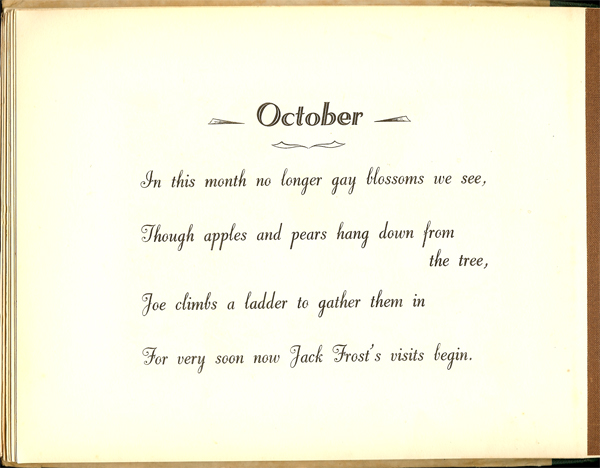 October
In this month no longer gay blossoms we see,
Though apples and pears hang down from
the tree,
Joe climbs a ladder to gather them in
For very soon now Jack Frost's visits begin.